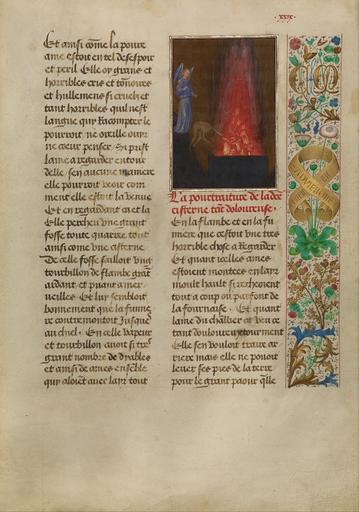 .xxix.
Et ainsi cõme la poure
ame estoit en tel desespoir
et peril Elle oy grans et
horribles cris et tonoires
et hullemens si cruelz et
tant horribles quil nest
langue qui racompter le
pourroit, ne oreille ouyr
ne coeur penser. Si prist
lame a regarder entour
delle, sen aucune maniere
elle pourroit veoir com
ment elle estoit la venue
Et en regardant ca et la
Elle percheu vne grant
fosse toute quarree tout
ainsi comme vne cisterne
De celle fosse sailloit vng
tourbillon de flambe grãt
ardant et puant a mer
ueilles Et luy sembloit
bonnement que la fumee
contremontoit Jusques
au ciel. En celle vapeur
et tourbillon auoit si tres
grant nombre de dyables
et ainsi de ames enseble
qui aloiẽt auec lair tout
La pourtraiture de ladite
cisterne tãt doloureuse.
En la flambe et en la fu
miere que cestoit vne tres
horrible chose a regarder
Et quant icelles ames
estoient montees en lair
moult hault si recheoient
tout a coup ou parfont de
la fournaise. Et quant
lame du chllier ot veu ce
tant douloureux tourment
Elle sen vouloit traire ar
riere mais elle ne pouoit
leuer ses pies de la terre
pour le grant paour qlle